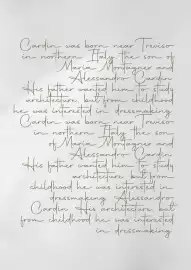 Cardin was born near Treviso
in northern Italy, the son of
Maria Montagner and
Alessandro Cardin
His father wanted him to study
architecture, but from childhood
he was interested in dressmaking.
Cardin was born near Treviso
in northern Italy, the son
of Maria Montagner and
Alessandro Cardin
His father wanted him to study
architecture, but from
childhood he was interested in
dressmaking. Alessandro
Cardin His architecture, but
from childhood he was interested
in dressmaking.